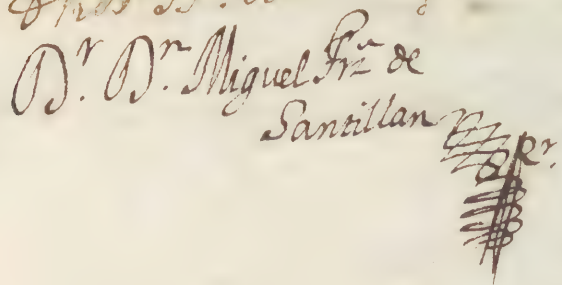 Dr. Dn. Miguel Frz de
Santillan
Rr.